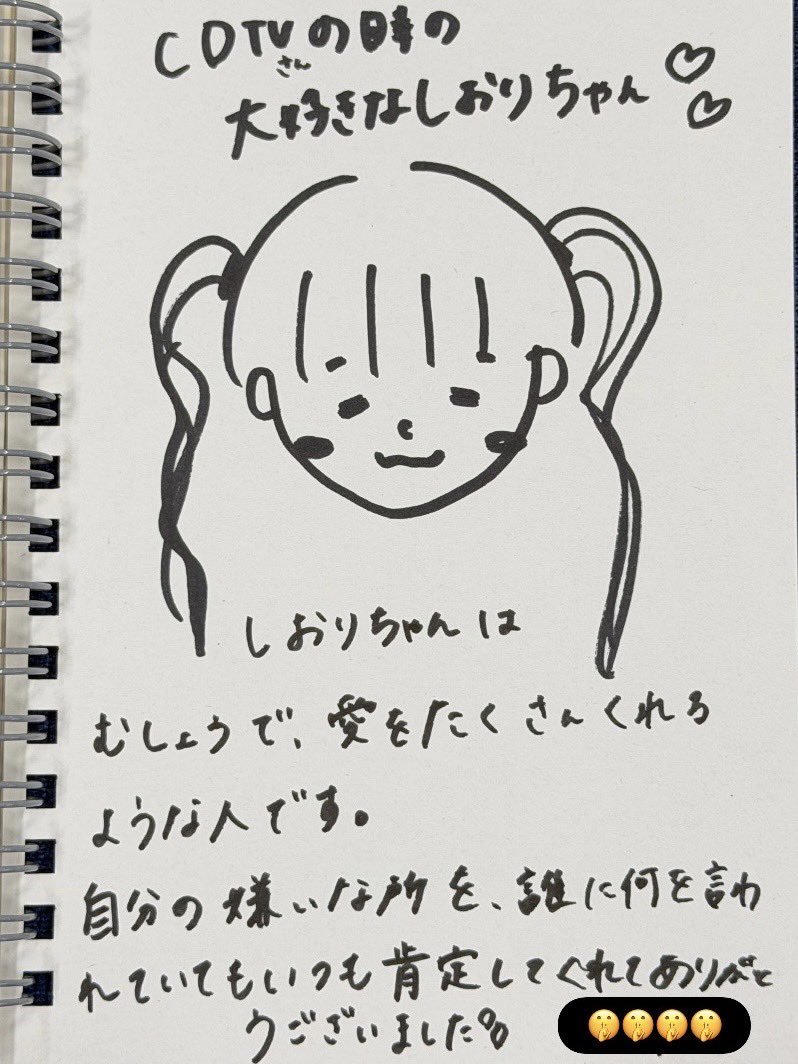 CDTVの時の
さん
大好きなしおりちゃん♡♡
しおりちゃんは
むしょうで、愛をたくさんくれる
ような人です。
自分の嫌いな所を、誰に何を言わ
れていてもいつも肯定してくれてありがと
うございました